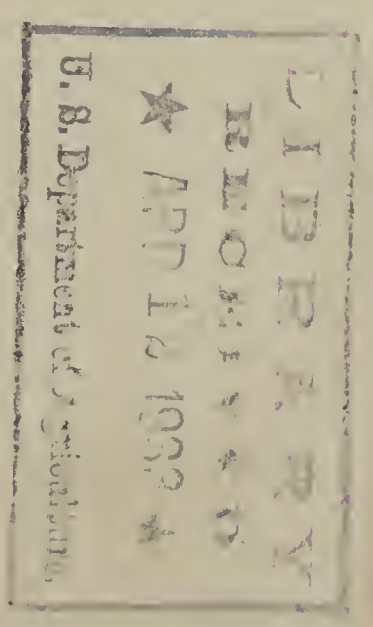 LIBRARY
RECEIVED
★ APR 1
U. S. Department of Agriculture